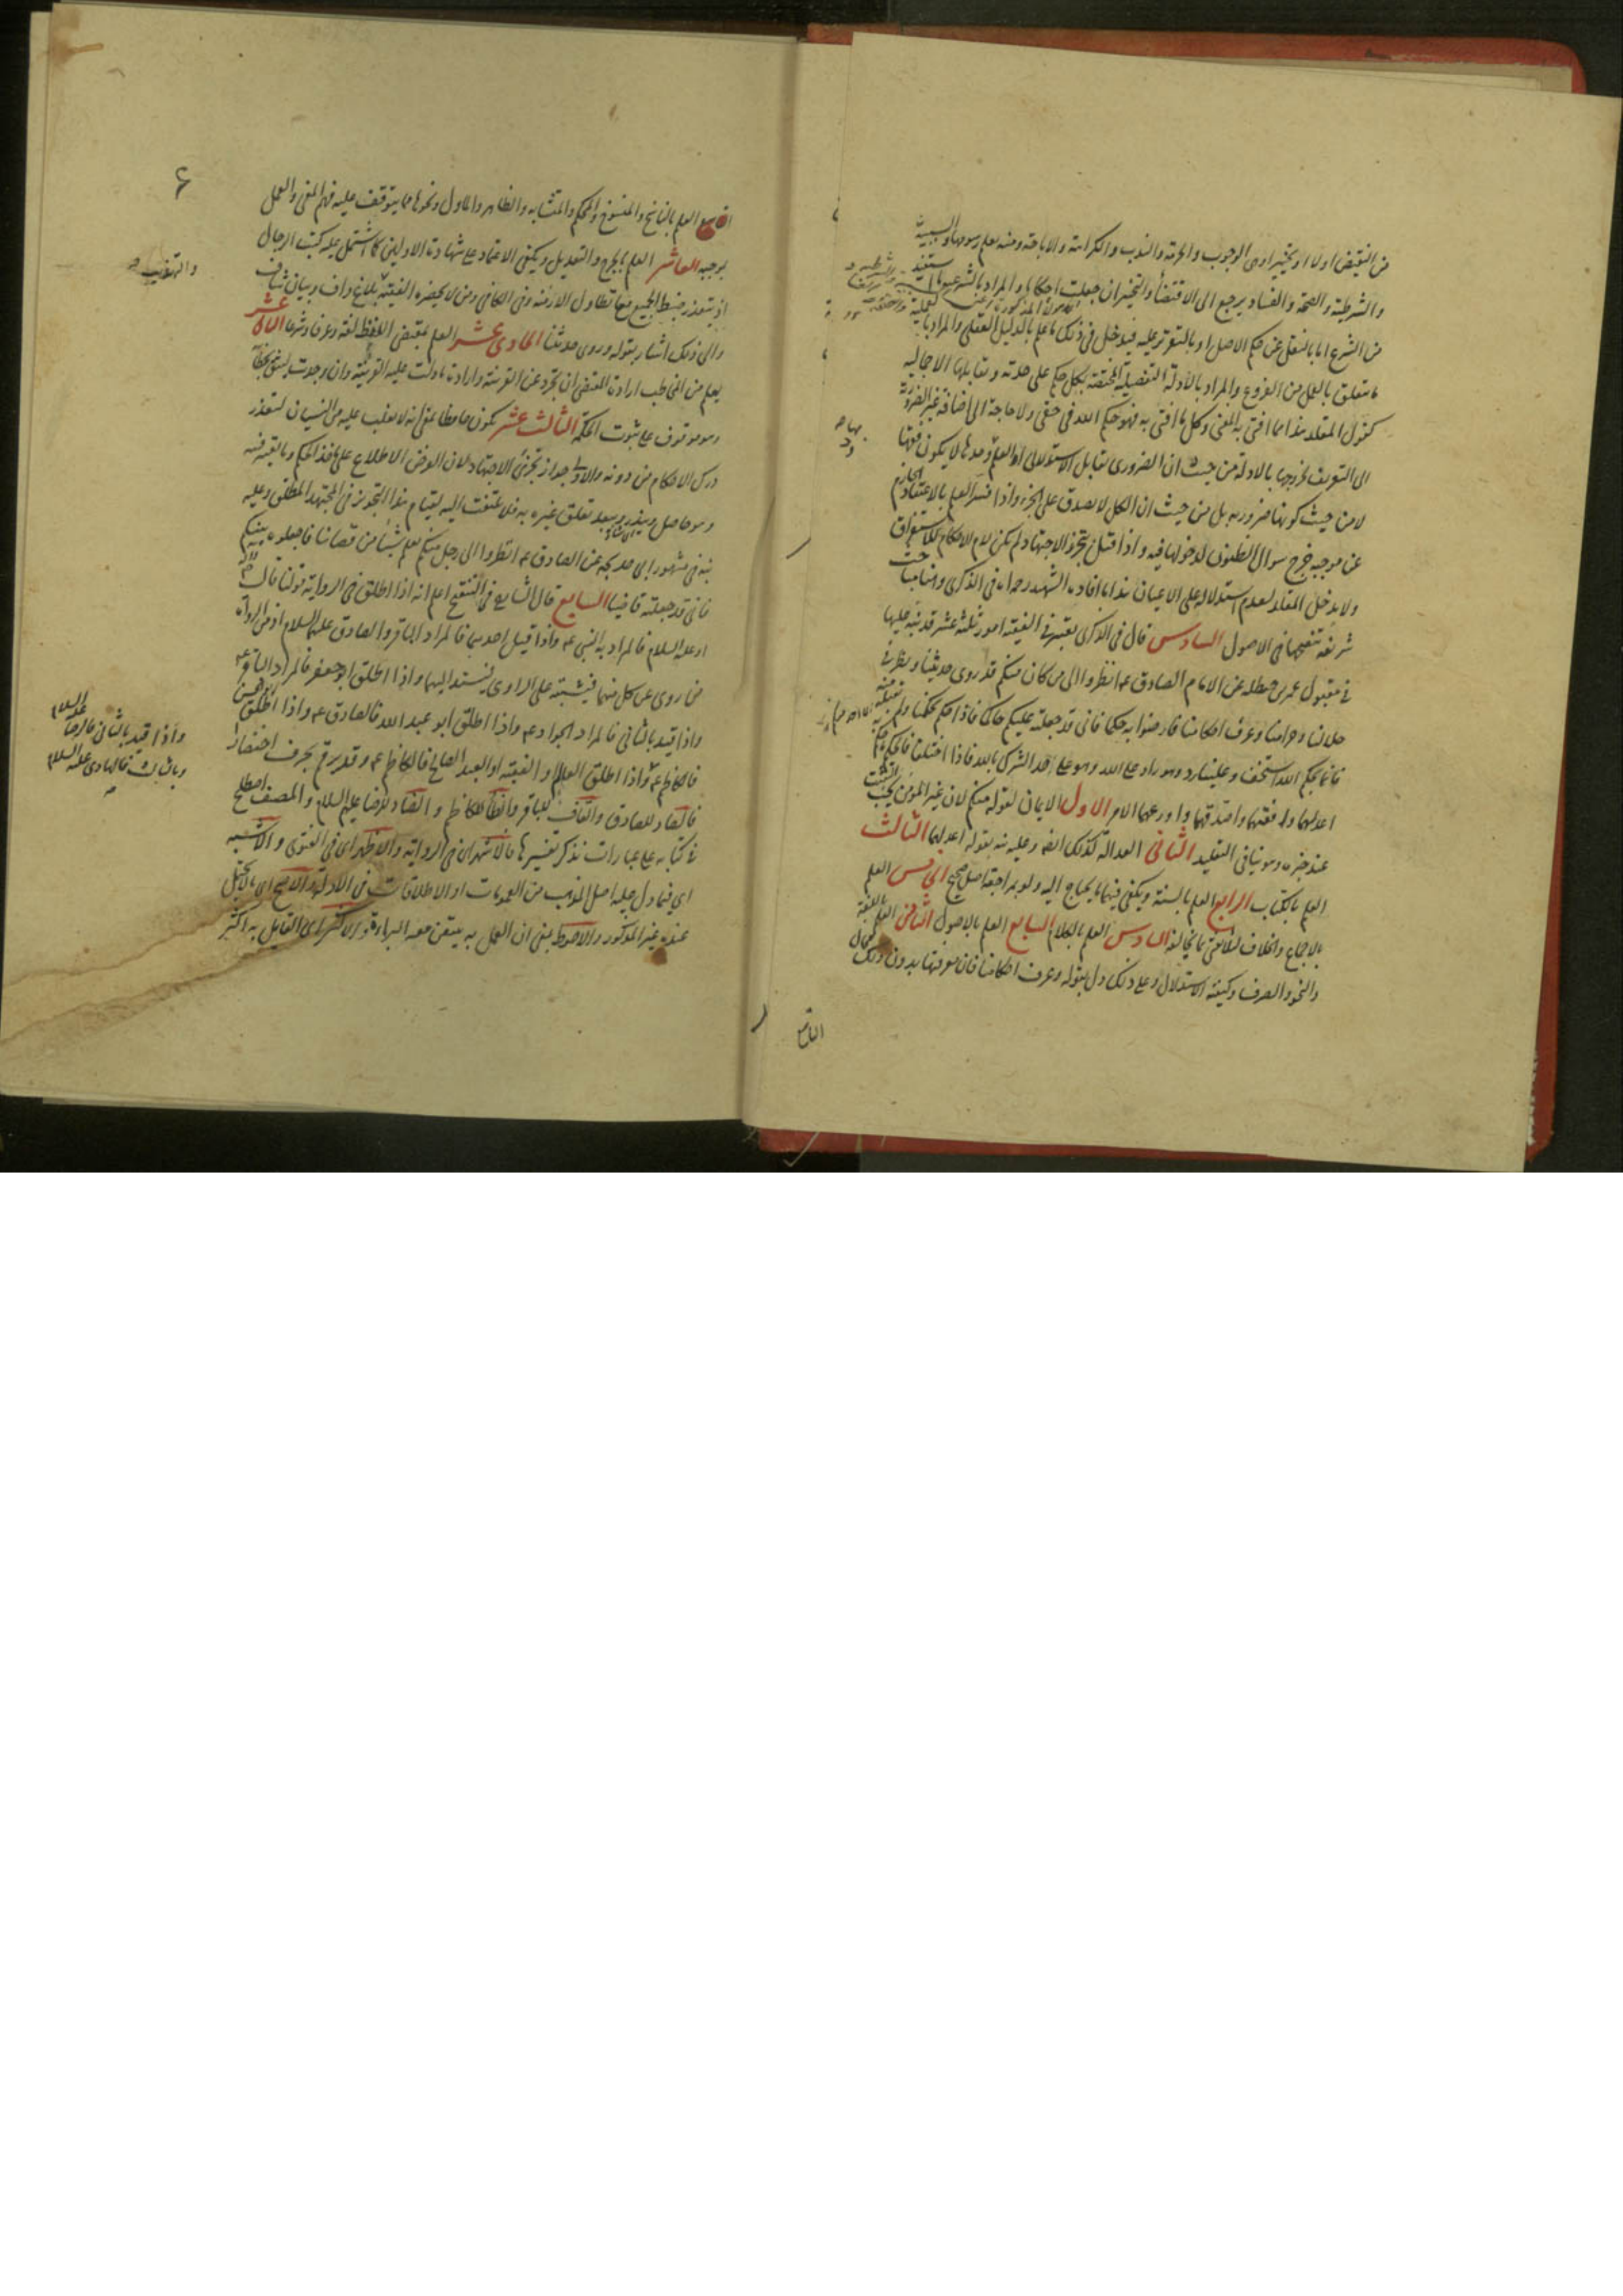 من النقيض اولا او يخير او هي الوجوب والحرمة والندب والكراهة والاباحة ومنه يعلم رسومها والسببية
والشرطية والصحة والفساد يرجع الى الاقتضاء والتخيير ان جعلت احكاما والمراد بالشرعية ما استفيد
من الشرع اما بالنقل عن حكم الاصل او بالتقرير عليه فيدخل في ذلك ما علم بالدليل العقلي والمراد بالعملية
ما يتعلق بالعمل من الفروع والمراد بالادلة التفصيلية المختصة بكل حكم على حدته ويقابلها الاجمالية
كقول المقلد هذا مما افتى به المفتي وكل ما افتى به فهو حكم الله في حقي ولا حاجة الى اضافة غير الضرورية
الى التعريف لخروجها بالادلة من حيث ان الضروري يقابل الاستدلالي
لا من حيث كونها ضرورية بل من حيث ان الكل لا يصدق على الجزء واذا فسر العلم بالاعتقاد الجازم
عن موجبه خرج سوال الظنون لدخولها فيه واذا قيل بتجزي الاجتهاد لم يكن لام الاحكام للاستغراق
ولا يدخل المقلد لعدم استدلاله على الاعيان هذا ما افاده الشهيد رحمه الله في الذكرى وههنا مباحث
شريفة تنقيحها في الاصول السادس قال في الذكرى يعتبر في الفقيه امور ثلثة عشر قد نبه عليها
في مقبول عمر بن حنظله عن الامام الصادق ع انظروا الى من كان منكم قد روى حديثنا ونظر في
حلالنا وحرامنا وعرف احكامنا فارضوا به حكما فاني قد جعلته عليكم حاكما فاذا حكم بحكمنا ولم يقبله منه
فانما بحكم الله استخف وعلينا رد وهو راد على الله وهو على حد الشرك بالله فاذا اختلفا فالحكم ما حكم
اعدلهما وافقههما واصدقهما واورعهما الامر الاول الايمان لقوله منكم لان غير المؤمن يجب التثبت
عند خبره وهو ينافي التقليد الثاني العدالة كذلك ايضا وعليه نبه بقوله اعدلهما الثالث
العلم بالكتاب الرابع العلم بالسنة ويكفي فيهما ما يحتاج اليه ولو بمراجعة اصل صحيح الخامس العلم
بالاجماع والخلاف لئلا يفتي بما يخالفه السادس العلم بالكلام السابع العلم بالاصول الثامن العلم باللغة
والنحو والصرف وكيفية الاستدلال وعلى ذلك دل بقوله وعرف احكامنا فان معرفتها بدون ذلك محال
التاسع
التاسع العلم بالناسخ والمنسوخ والمحكم والمتشابه والظاهر والماول ونحوها مما يتوقف عليه فهم المعنى والعمل
بموجبه العاشر العلم بالجرح والتعديل ويكفي الاعتماد على شهادة الاولين كما اشتمل عليه كتب الرجال
اذ يتعذر ضبط الجميع مع تطاول الازمنة وفي الكافي ومن لا يحضره الفقيه بلاغ واف وبيان شاف
والتهذيب
والى ذلك اشار بقوله وروى حديثنا الحادي عشر العلم بمقتضى اللفظ لغة وعرفا وشرعا الثاني عشر
يعلم من المخاطب ارادة المقتضى ان تجرد عن القرينة وارادة ما دلت عليه القرينة وان وجدت ليثق بخطابه
وهو موقوف على ثبوت الحكمة الثالث عشر يكون حافظا بمعنى انه لا يغلب عليه من النسيان لتعذر
درك الاحكام من دونه والاولى جواز تجزئ الاجتهاد لان الغرض الاطلاع على ماخذ الحكم وما يعتبر فيه
وهو حاصل ويندر ويبعد تعلق غيره به فلا يلتفت اليه لقيام هذا التجويز في المجتهد المطلق وعليه
نبه في مشهور ابي خديجه عن الصادق ع انظروا الى رجل منكم يعلم شيئا من قضانا فاجعلوه بينكم
فاني قد جعلته قاضيا السابع قال الشارح في التنقيح اعلم انه اذا اطلق في الرواية قولنا قال
او عليه السلام فالمراد به النبي ع واذا قيل احدهما فالمراد الباقر والصادق عليهما السلام اذ من الرواة
من روى عن كل منهما فيشتبه على الراوي فيسنده اليهما واذا اطلق ابو جعفر فالمراد الباقر ع
واذا قيد بالثاني فالمراد الجواد ع واذا اطلق ابو عبد الله فالصادق ع واذا اطلق ابو الحسن
فالكاظم ع واذا اطلق العالم او الفقيه او العبد الصالح فالكاظم ع وقد يرقم بحرف اختصارا
واذا قيد بالثاني فالرضا عليه السلام
وبالثالث فالهادي عليه السلام
فالصاد للصادق والقاف للباقر والظاء للكاظم والضاد للرضا عليهم السلام والمصنف اصطلح
في كتابه على عبارات نذكر تفسيرها فالاشهر اي في الرواية والاظهر اي في الفتوى والاشبه
اي فيما دل عليه اصل المذهب من العمومات او الاطلاقات في الادلة والاصح اي ما لا يحتمل
عنده غير المذكور والاحوط يعني ان العمل به يتيقن معه البراءة والاكثر اي القايل به اكثر